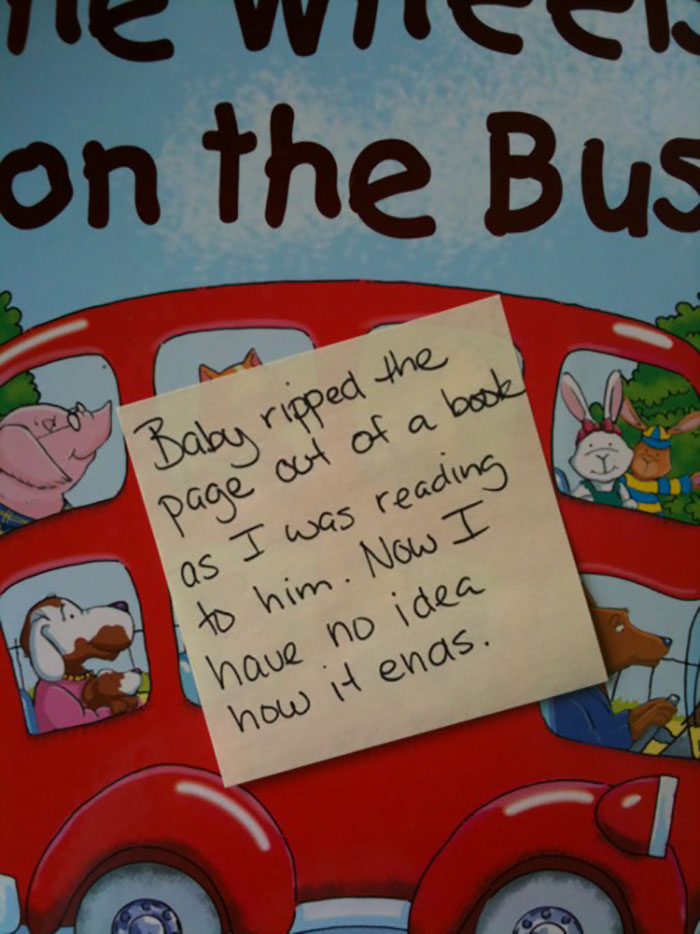 he Wheels
on the Bus
Baby ripped the
page out of a book
as I was reading
to him. Now I
have no idea
how it ends.